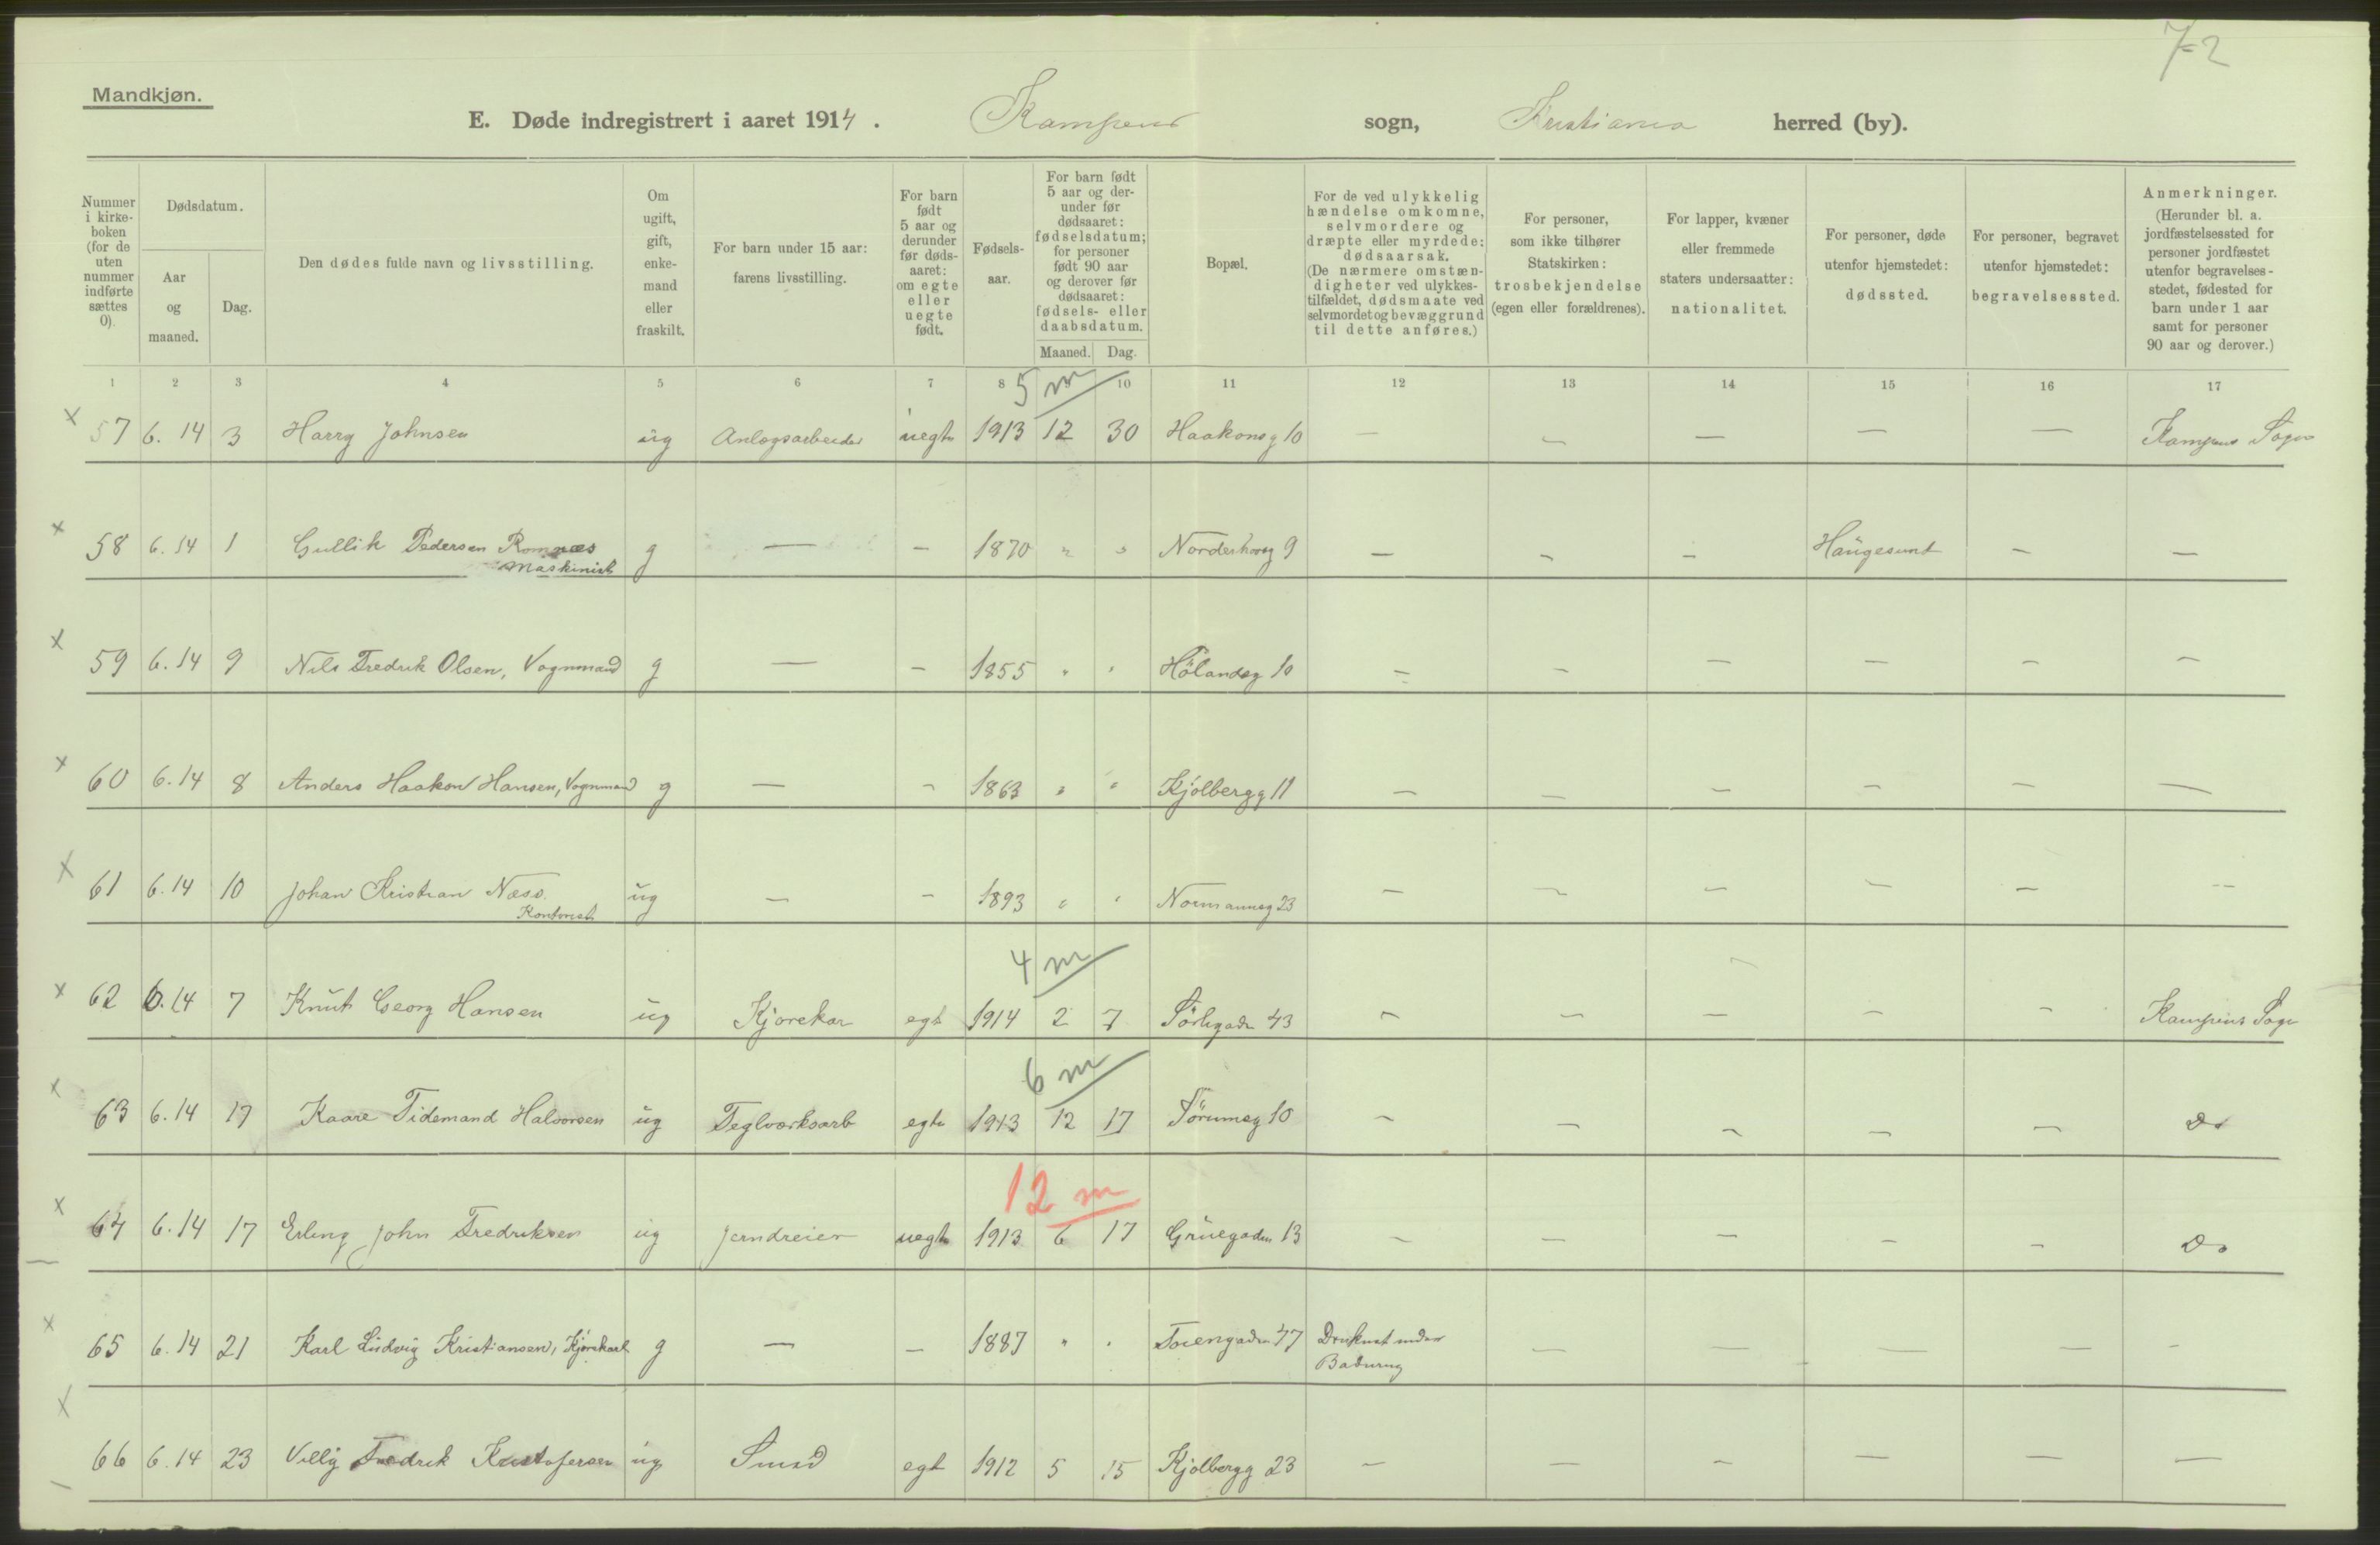 7-2
Mandkjøn.
E. Døde indregistrert i aaret 1914. Kampens sogn, Kristiania herred (by).
Nummer i kirkeboken (for de uten nummer indførte sættes 0).
Dødsdatum.
Aar og maaned.
Dag.
Den dødes fulde navn og livsstilling.
Om ugift, gift, enkemand eller fraskilt.
For barn under 15 aar: farens livsstilling.
For barn født 5 aar og derunder før dødsaaret: om egte eller uegte født.
Fødselsaar.
For barn født 5 aar og derunder før dødsaaret: fødselsdatum; for personer født 90 aar og derover før dødsaaret: fødsels- eller daabsdatum.
Maaned. Dag.
Bopæl.
For de ved ulykkelig hændelse omkomne, selvmordere og dræpte eller myrdede: dødsaarsak. (De nærmere omstændigheter ved ulykkestilfældet, dødsmaate ved selvmordet og bevæggrund til dette anføres.)
For personer, som ikke tilhører Statskirken: trosbekjendelse (egen eller forældrenes).
For lapper, kvæner eller fremmede staters undersaatter: nationalitet.
For personer, døde utenfor hjemstedet: dødssted.
For personer, begravet utenfor hjemstedet: begravelsessted.
Anmerkninger. (Herunder bl. a. jordfæstelsessted for personer jordfæstet utenfor begravelsesstedet, fødested for barn under 1 aar samt for personer 90 aar og derover.)
1 2 3 4 5 6 7 8 9 10 11 12 13 14 15 16 17
5 m
x 57 6. 14 3 Harry Johnsen ug Anlægsarbeider uegte 1913 12 30 Haakonsg 10 — — — — — Kampens Sogn
x 58 6. 14 1 Gullik Pedersen Romnæs g — — 1870 " " Norderhovg 9 — — — Haugesund — —
Maskinist
x 59 6. 14 9 Nils Fredrik Olsen, Vognmand g — — 1855 " " Hölandsg 10 — — — — — —
x 60 6. 14 8 Anders Haakon Hansen, Vognmand g — — 1863 " " Kjölbergg 11 — — — — — —
x 61 6. 14 10 Johan Kristian Næss. ug — — 1893 " " Normannsg 23 — — — — — —
Kontorist
4 m
x 62 6. 14 7 Knut Georg Hansen ug Kjørekar egte 1914 2 7 Sörligaden 43 — — — — — Kampens Sogn
6 m
x 63 6. 14 17 Kaare Tidemand Halvorsen ug Teglværksarb egte 1913 12 17 Sörumsg 10 — — — — — Do
12 m
x 64 6. 14 17 Erling John Fredriksen ug Jerndreier uegte 1913 6 17 Grüegaden 13 — — — — — Do
x 65 6. 14 21 Karl Ludvig Kristiansen, Kjørekarl g — — 1887 " " Toiengaden 47 Druknet under — — — — —
Badning
x 66 6. 14 23 Villy Fredrik Kristofersen ug Smed egte 1912 5 15 Kjölbergg 23 — — — — — —